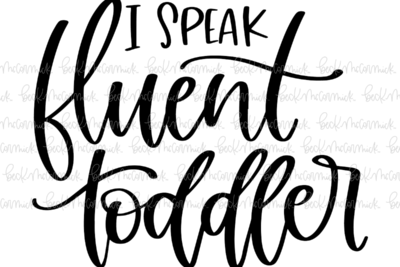 I SPEAK
fluent
toddler